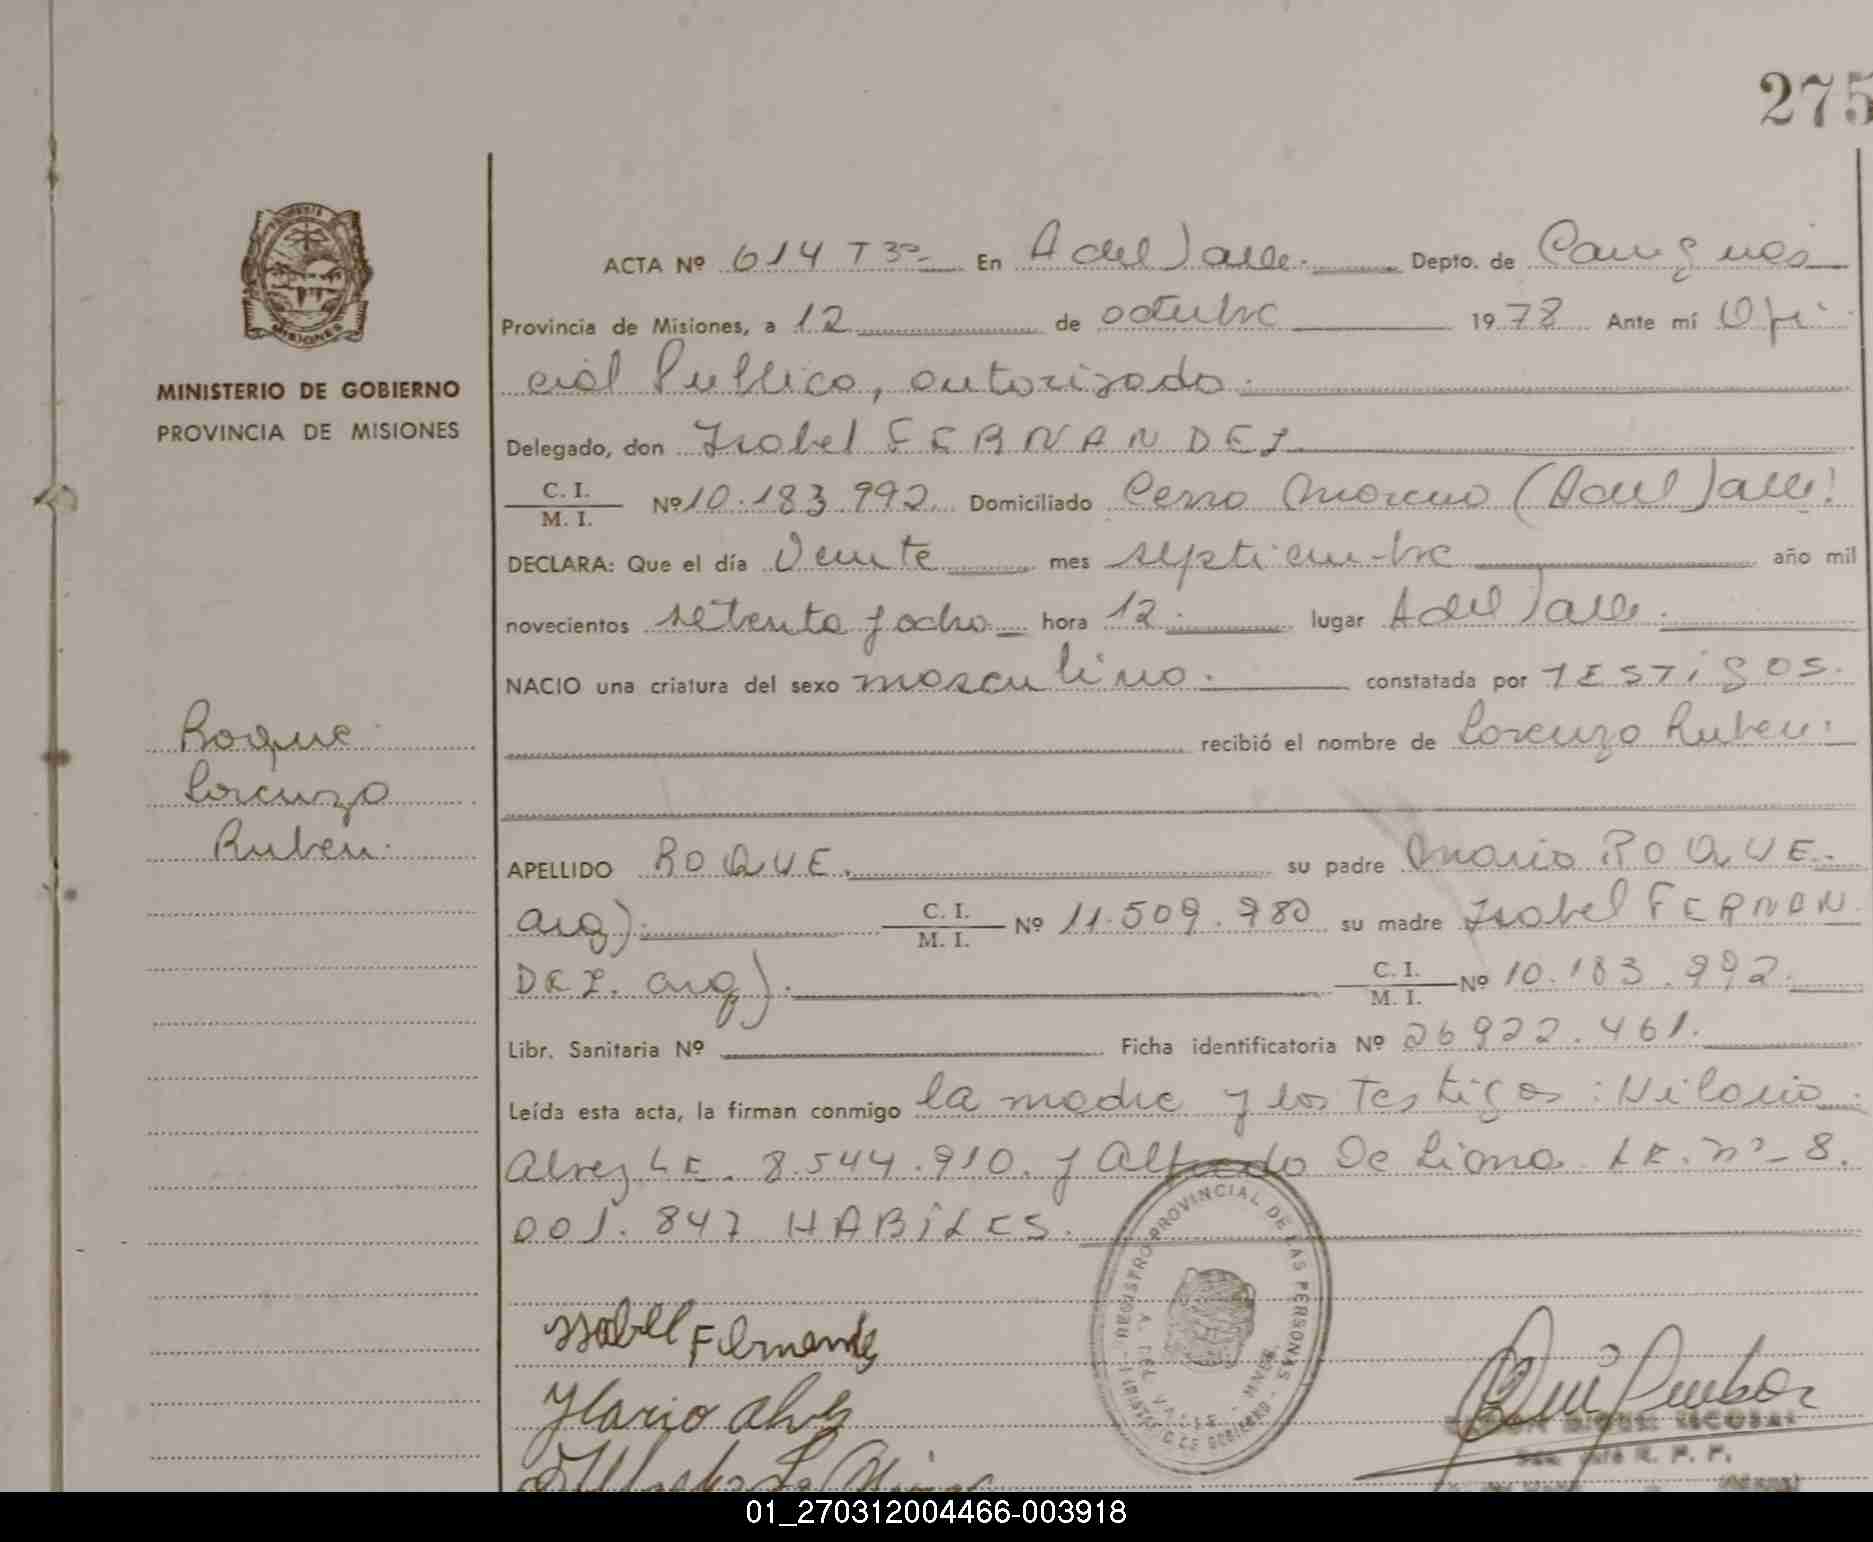 275
ACTA Nº 614 Tº 3º En A del Valle. Depto. de Cainguás
Provincia de Misiones, a 12 de octubre 1978 Ante mí Ofi-
cial Publico, autorizado.
MINISTERIO DE GOBIERNO
PROVINCIA DE MISIONES
Delegado, don Isabel FERNANDEZ
C. I. / M. I. Nº 10.183.992. Domiciliado Cerro Moreno (A del Valle)
DECLARA: Que el día Veinte mes septiembre año mil
novecientos setenta y ocho hora 12. lugar A del Valle.
NACIO una criatura del sexo masculino. constatada por TESTIGOS.
recibió el nombre de Lorenzo Ruben.
Roque
Lorenzo
Ruben.
APELLIDO ROQUE. su padre Mario ROQUE.
arg). C. I. / M. I. Nº 11.509.980 su madre Isabel FERNAN
DEZ. arg). C. I. / M. I. Nº 10.183.992.
Libr. Sanitaria Nº Ficha identificatoria Nº 26922.461.
Leída esta acta, la firman conmigo la madre y los Testigos: Hilario
Alvez LE. 8.544.910. y Alfredo De Lima. LE. nº 8.
001.847 HABILES.
REGISTRO PROVINCIAL DE LAS PERSONAS
A. DEL VALLE - MNES.
MINISTERIO DE GOBIERNO
Isabel Fernande
Ylario alvez
MIGUEL ESCOBAR
R. P. P.
MISIONES
01_270312004466-003918